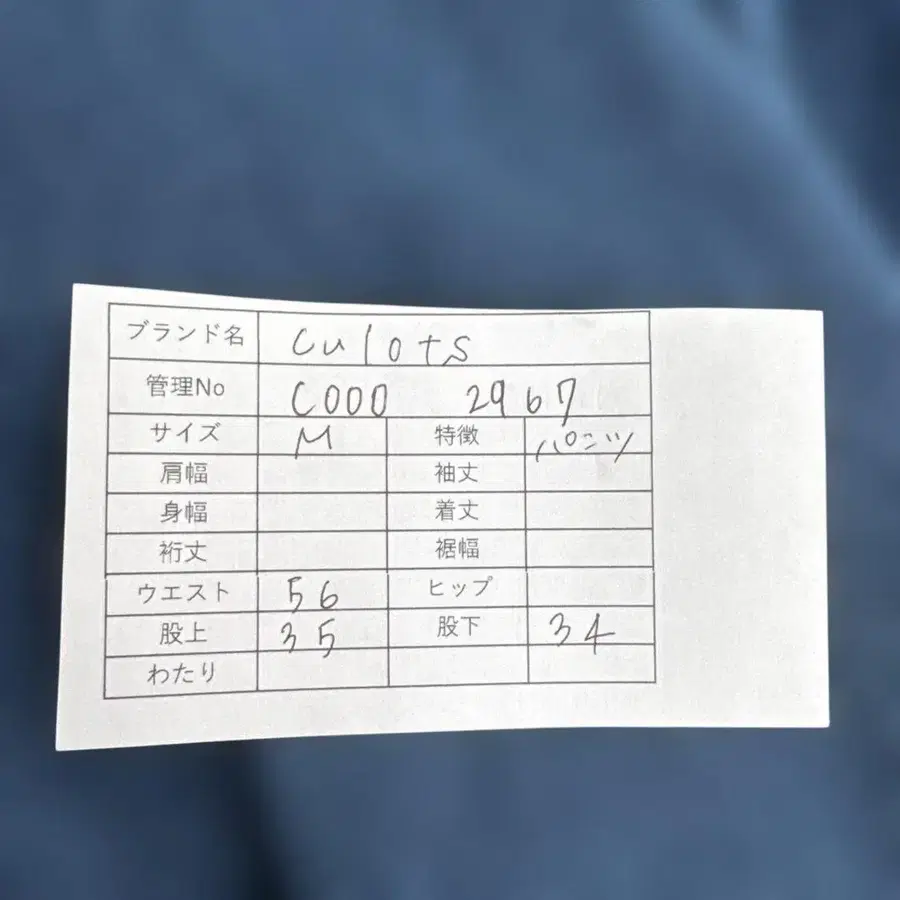 ブランド名 culots
管理No C000 2967
サイズ M 特徴 パンツ
肩幅 袖丈
身幅 着丈
裄丈 裾幅
ウエスト 56 ヒップ
股上 35 股下 34
わたり